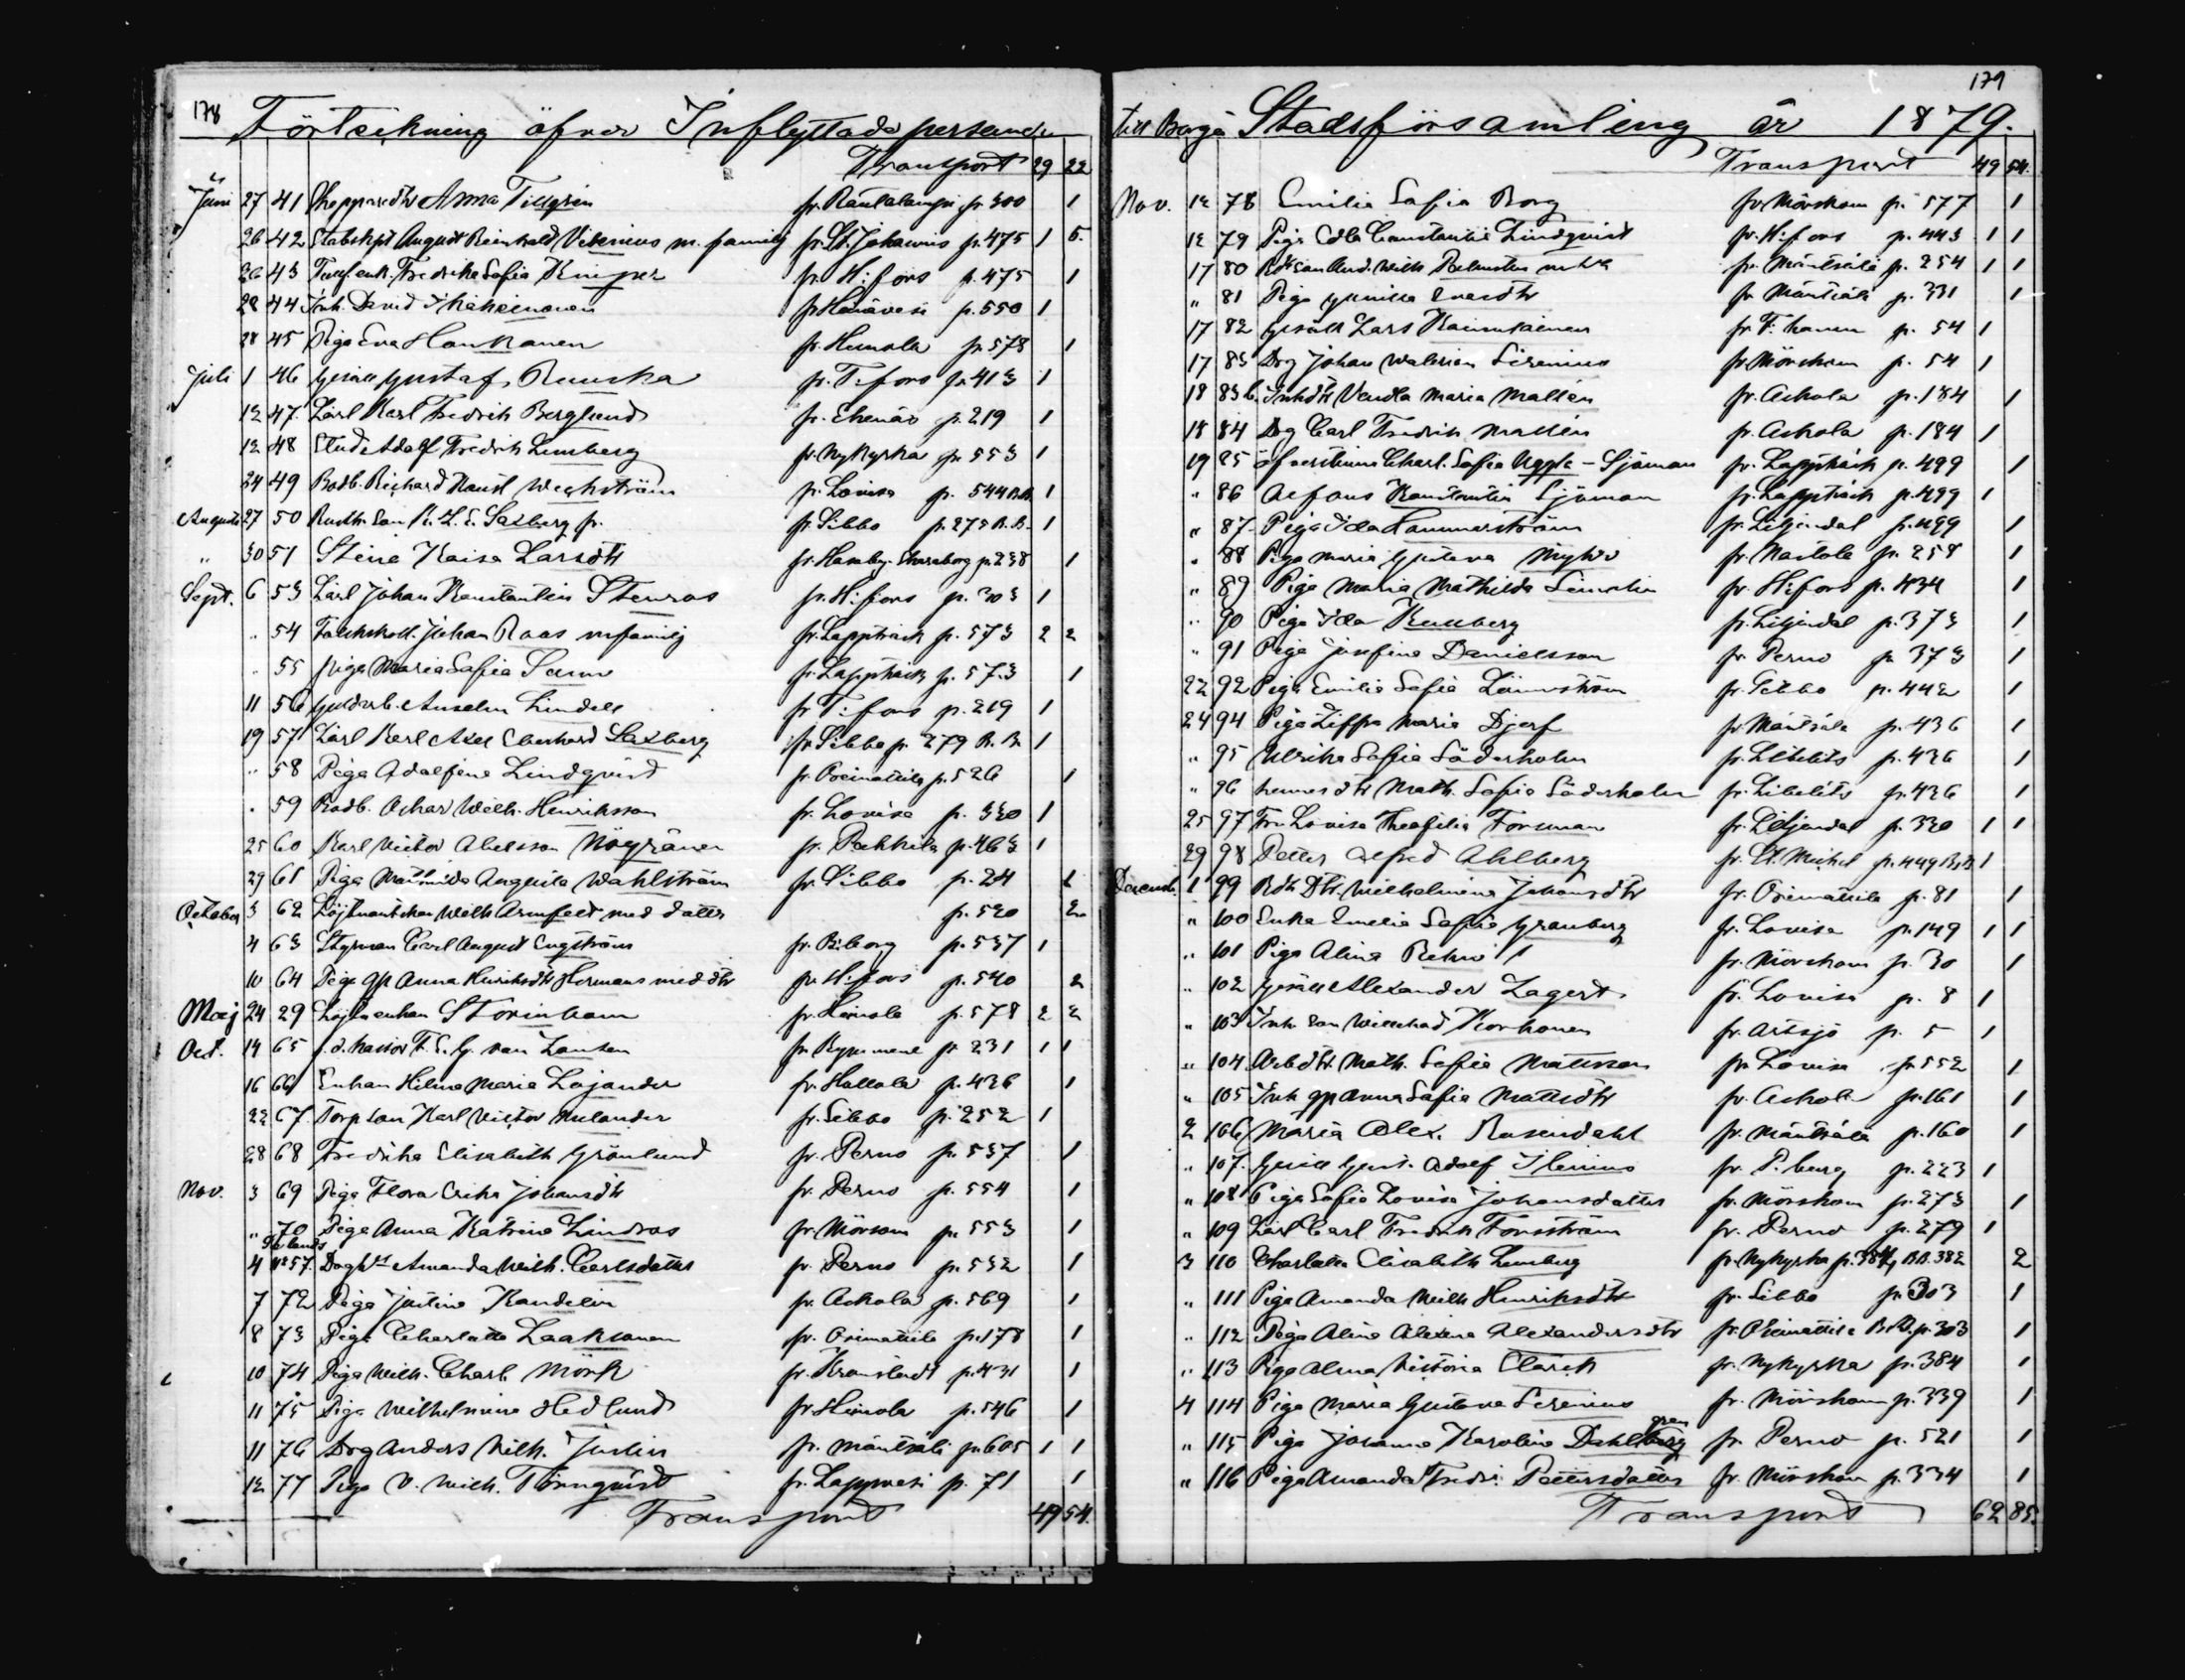 178
Förteckning öfver Inflyttade personer
Transport 29 22
Juni 27 41 Anna Tillgrén fr. Rautalampi p. 300 1
26 42 Stabskpt August Reinhold Vilenius m. familj fr. St. Johannis p. 475 1 5.
26 43 enk. Fredrika Sofia fr. H:fors p. 475 1
28 44 Inh. David fr. p. 550 1
28 45 Piga Eva Haukanen fr. p. 578 1
Juli 1 46 Gesäll Gustaf Ruuska fr. T:fors p. 413 1
12 47. Lärl Karl Fredrik Berglund fr. Ekenäs p. 219 1
12 48 Stud Adolf Fredrik Limberg fr. Nykyrka p. 553 1
24 49 Bodb. Richard Wechström fr. Lovisa p. 544 B.B. 1
Augusti 27 50 Rusth. Son K. L. E. Saxberg fr. Sibbo p. 275 B.B. 1
" 30 51 Stina Kaisa Larsdtr p. 238 1
Sept. 6 53 Lärl Johan Konstantin Stenros fr. H:fors p. 303 1
" 54 Johan Roos m familj fr. Lappträsk p. 573 2 2
" 55 piga Maria Sofia fr. Lappträsk p. 573 1
11 56 Anselm Lindell fr. T:fors p. 219 1
19 57 Lärl Karl Axel Eberhard Saxberg fr. Sibbo p. 279 B.B. 1
" 58 Piga Adolfina Lindqvist fr. Orimattila p. 526 1
" 59 Bodb. Oskar Wilh. Henriksson fr. Lovisa p. 330 1
25 60 Karl Victor Abelsson fr. p. 463 1
29 61 Piga Augusta Wahlström fr. Sibbo p. 24 1
October 3 62 Wilh Armfelt med dotter p. 520 2
4 63 Styrman Carl August Engström fr. B:borg p. 537 1
10 64 Piga Anna Henriksdtr Hermans med dtr fr. H:fors p. 540 2
Maj 24 29 Storinbom fr. Heinola p. 578 2 2
Oct. 14 65 F. E. G. von Zansen fr. Kymmene p. 231 1 1
16 66 Enkan Hilma Maria Lojander fr. Hollola p. 436 1
22 67. Torp Son Karl Victor Melander fr. Sibbo p. 252 1
28 68 Fredrika Elisabeth Grönlund fr. Perno p. 537 1
Nov. 3 69 Piga Flora Erika Johansdtr fr. Perno p. 554 1
" 70 Piga Anna Katrina Lindros fr. Mörsom p. 553 1
4 No 57. Amanda Wilh. Carlsdotter fr. Perno p. 532 1
7 72 Piga Justina Kandelin fr. Askola p. 569 1
8 73 Piga Charlotta Laaksonen fr. Orimattila p. 178 1
10 74 Piga Wilh. Charl Mörk fr. Kronstadt p. 431 1
11 75 Piga Wilhelmina Hedlund fr. Heinola p. 546 1
11 76 Drg Anders Wilh. Juslin fr. Mäntsälä p. 605 1 1
12 77 Piga V. Wilh. Törnqvist fr. Lappvesi p. 71 1
Transport 49 54.
179
till Borgå Stadsförsamling år 1879.
Transport 49 54.
Nov. 12 78 Emilia Sofia Borg fr. Mörskom p. 577 1
12 79 Piga Edla Constantia Lindqvist fr. H:fors p. 443 1 1
17 80 And. Wilh fr. Mäntsälä p. 254 1 1
" 81 Piga Gunilla Evasdtr fr. Mäntsälä p. 331 1
17 82 Gesäll Lars fr. F:hamn p. 54 1
17 83 Drg Johan Walerian Sirenius fr. Mörskom p. 54 1
18 83b. Inhdtr Vendla Maria Mallén fr. Askola p. 184 1
18 84 Drg Carl Fredrik Mallén fr. Askola p. 184 1
19 85 Charl. Sofia Uggla – Sjöman fr. Lappträsk p. 499 1
" 86 Alfons Konstantin Sjöman fr. Lappträsk p. 499 1
" 87. Piga Ida Hammarström fr. Liljendal p. 499 1
" 88 Piga Maria Gustava fr. Nastola p. 258 1
" 89 Piga Maria Mathilda fr. H:fors p. 434 1
" 90 Piga Ida fr. Liljendal p. 373 1
" 91 Piga Josefina Danielsson fr. Perno p. 373 1
22 92 Piga Emilia Sofia Lönnström fr. Sibbo p. 442 1
24 94 Piga Ziffra Maria Djerf fr. Mäntsälä p. 436 1
" 95 Ulrika Sofia Söderholm fr. Libelits p. 436 1
" 96 hennes dtr Math. Sofia Söderholm fr. Libelits p. 436 1
25 97 Fru Lovisa Theofilia Forsman fr. Liljendal p. 330 1 1
29 98 Petter Alfred Ahlberg fr. St. Michel p. 449 B.B. 1
Decemb. 1 99 Wilhelmina Johansdtr fr. Orimattila p. 81 1
" 100 Enka Emelia Sofia Granberg fr. Lovisa p. 149 1 1
" 101 Piga Alina fr. Mörskom p. 30 1
" 102 Gesäll Alexander Lagert fr. Lovisa p. 8 1
" 103 Inh. Son Korhonen fr. Artsjö p. 5 1
" 104 Math. Sofia Mattsson fr. Lovisa p. 552 1
" 105 Inh Anna Sofia Mattsdtr fr. Askola p. 161 1
2 106 Maria Alex. Rosendahl fr. Mäntsälä p. 160 1
" 107. Gesäll Gust. Adolf Ilenius fr. P:burg p. 223 1
" 108 Piga Sofia Lovisa Johansdotter fr. Mörskom p. 273 1
" 109 Lärl Carl Fredrik Forsström fr. Perno p. 279 1
3 110 Charlotta Elisabeth Limberg fr. Nykyrka p. 384, B.B. 382 2
" 111 Piga Amanda Wilh Henriksdtr fr. Sibbo p. 303 1
" 112 Piga Alina Alexina Alexandersdtr fr. Orimattila B.B. p. 303 1
" 113 Piga Alma Victoria fr. Nykyrka p. 384 1
4 114 Piga Maria Gustava Serenius fr. Mörskom p. 339 1
gren
" 115 Piga Johanna Karolina Dahlberg fr. Perno p. 521 1
" 116 Piga Amanda Fredr. Pettersdotter fr. Mörskom p. 334 1
Transport 62 85.